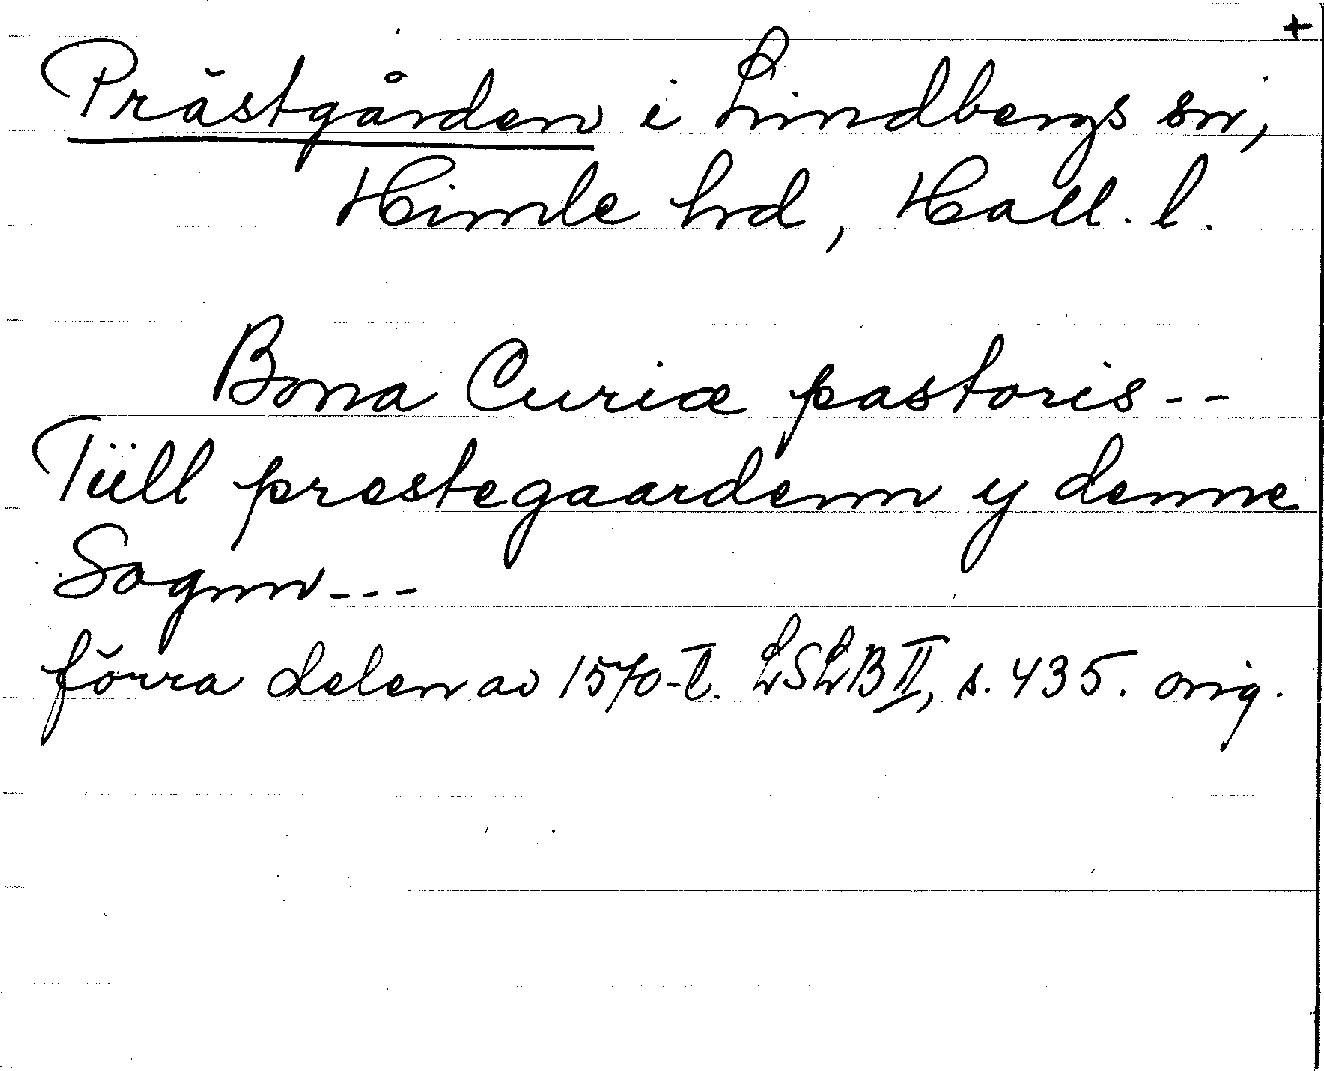 +
Prästgården i Lindbergs sn,
Himle hd, Hall. l.
Bona Curiæ pastoris --
Tüll prestegaardenn y denne
Sognn ---
förra delen av 1570-t. LSLB II, s. 435. orig.